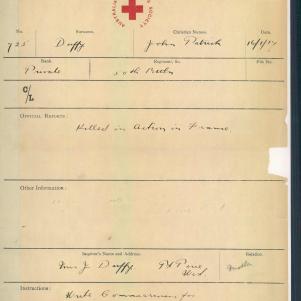 No. Surname. Christian Names. Date.
725 Duffy John Patrick 16/1/17
Rank. Regiment, &c. File No.
Private 50th Battn
C/L
OFFICIAL REPORTS:
Killed in Action in France
Other Information:
Inquirer's Name and Address. Relation.
Mrs J. Duffy Mother
Instructions:
Write Commission for